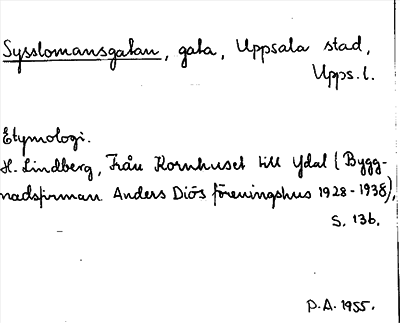 Sysslomansgatan, gata, Uppsala stad,
Upps. l.
Etymologi.
H. Lindberg, Från Kornhuset till Ydal (Bygg-
nadsfirman Anders Diös föreningshus 1928-1938),
s. 136.
P.A. 1955.